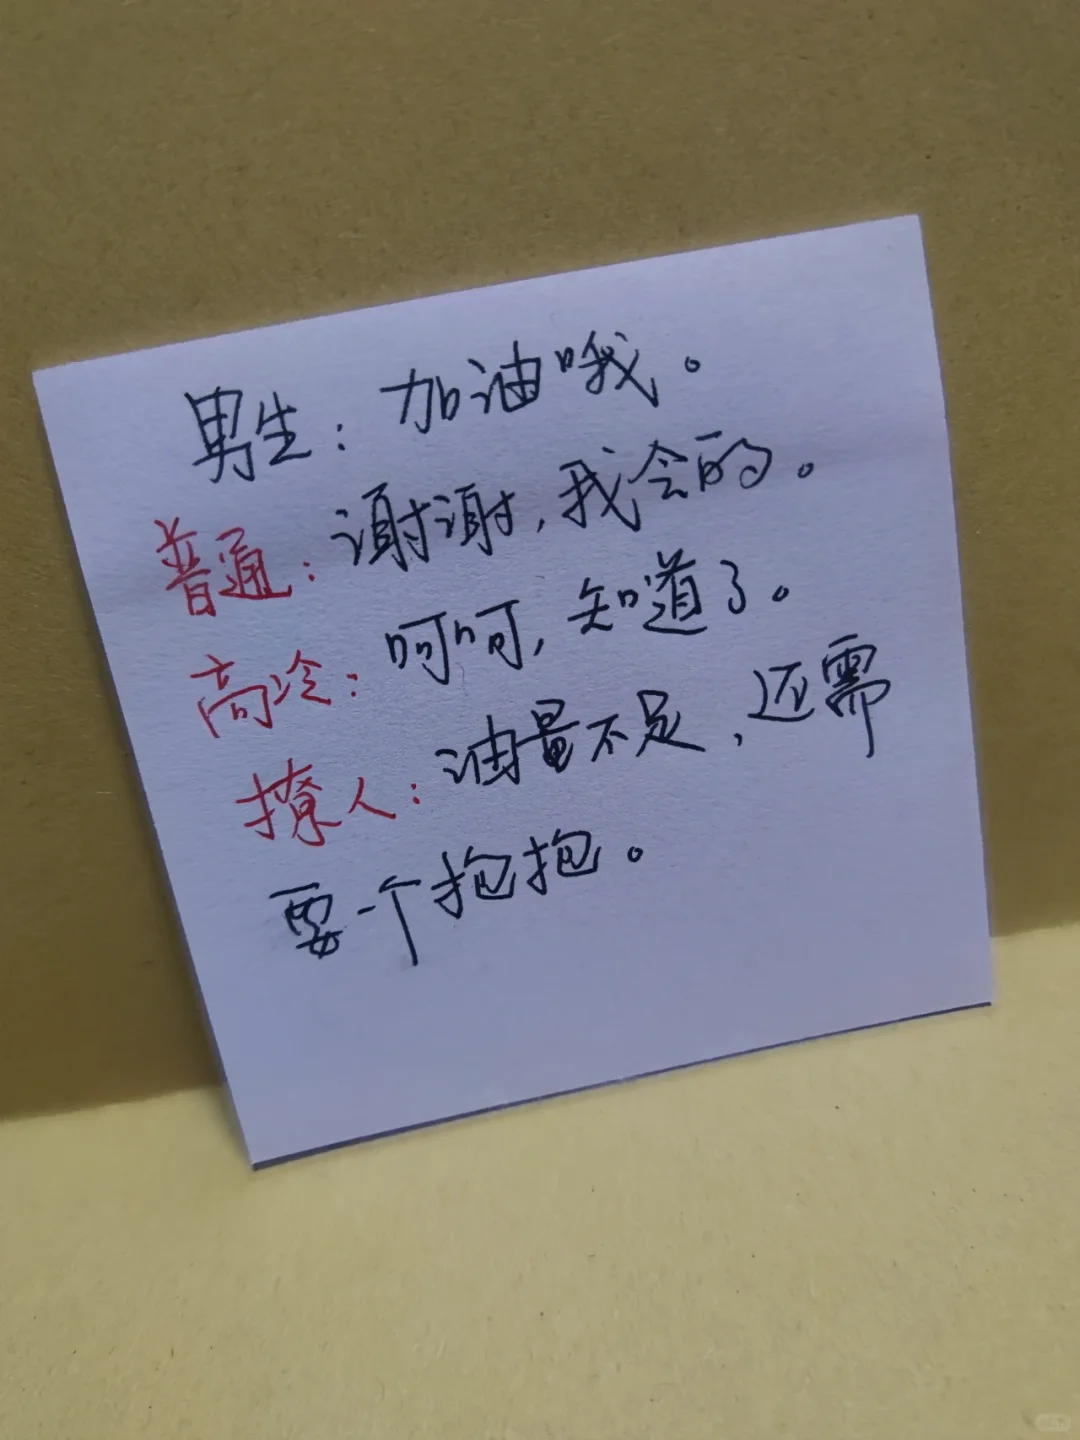 男生：加油哦。
普通：谢谢，我会的。
高冷：呵呵，知道了。
撩人：油量不足，还需
要一个抱抱。